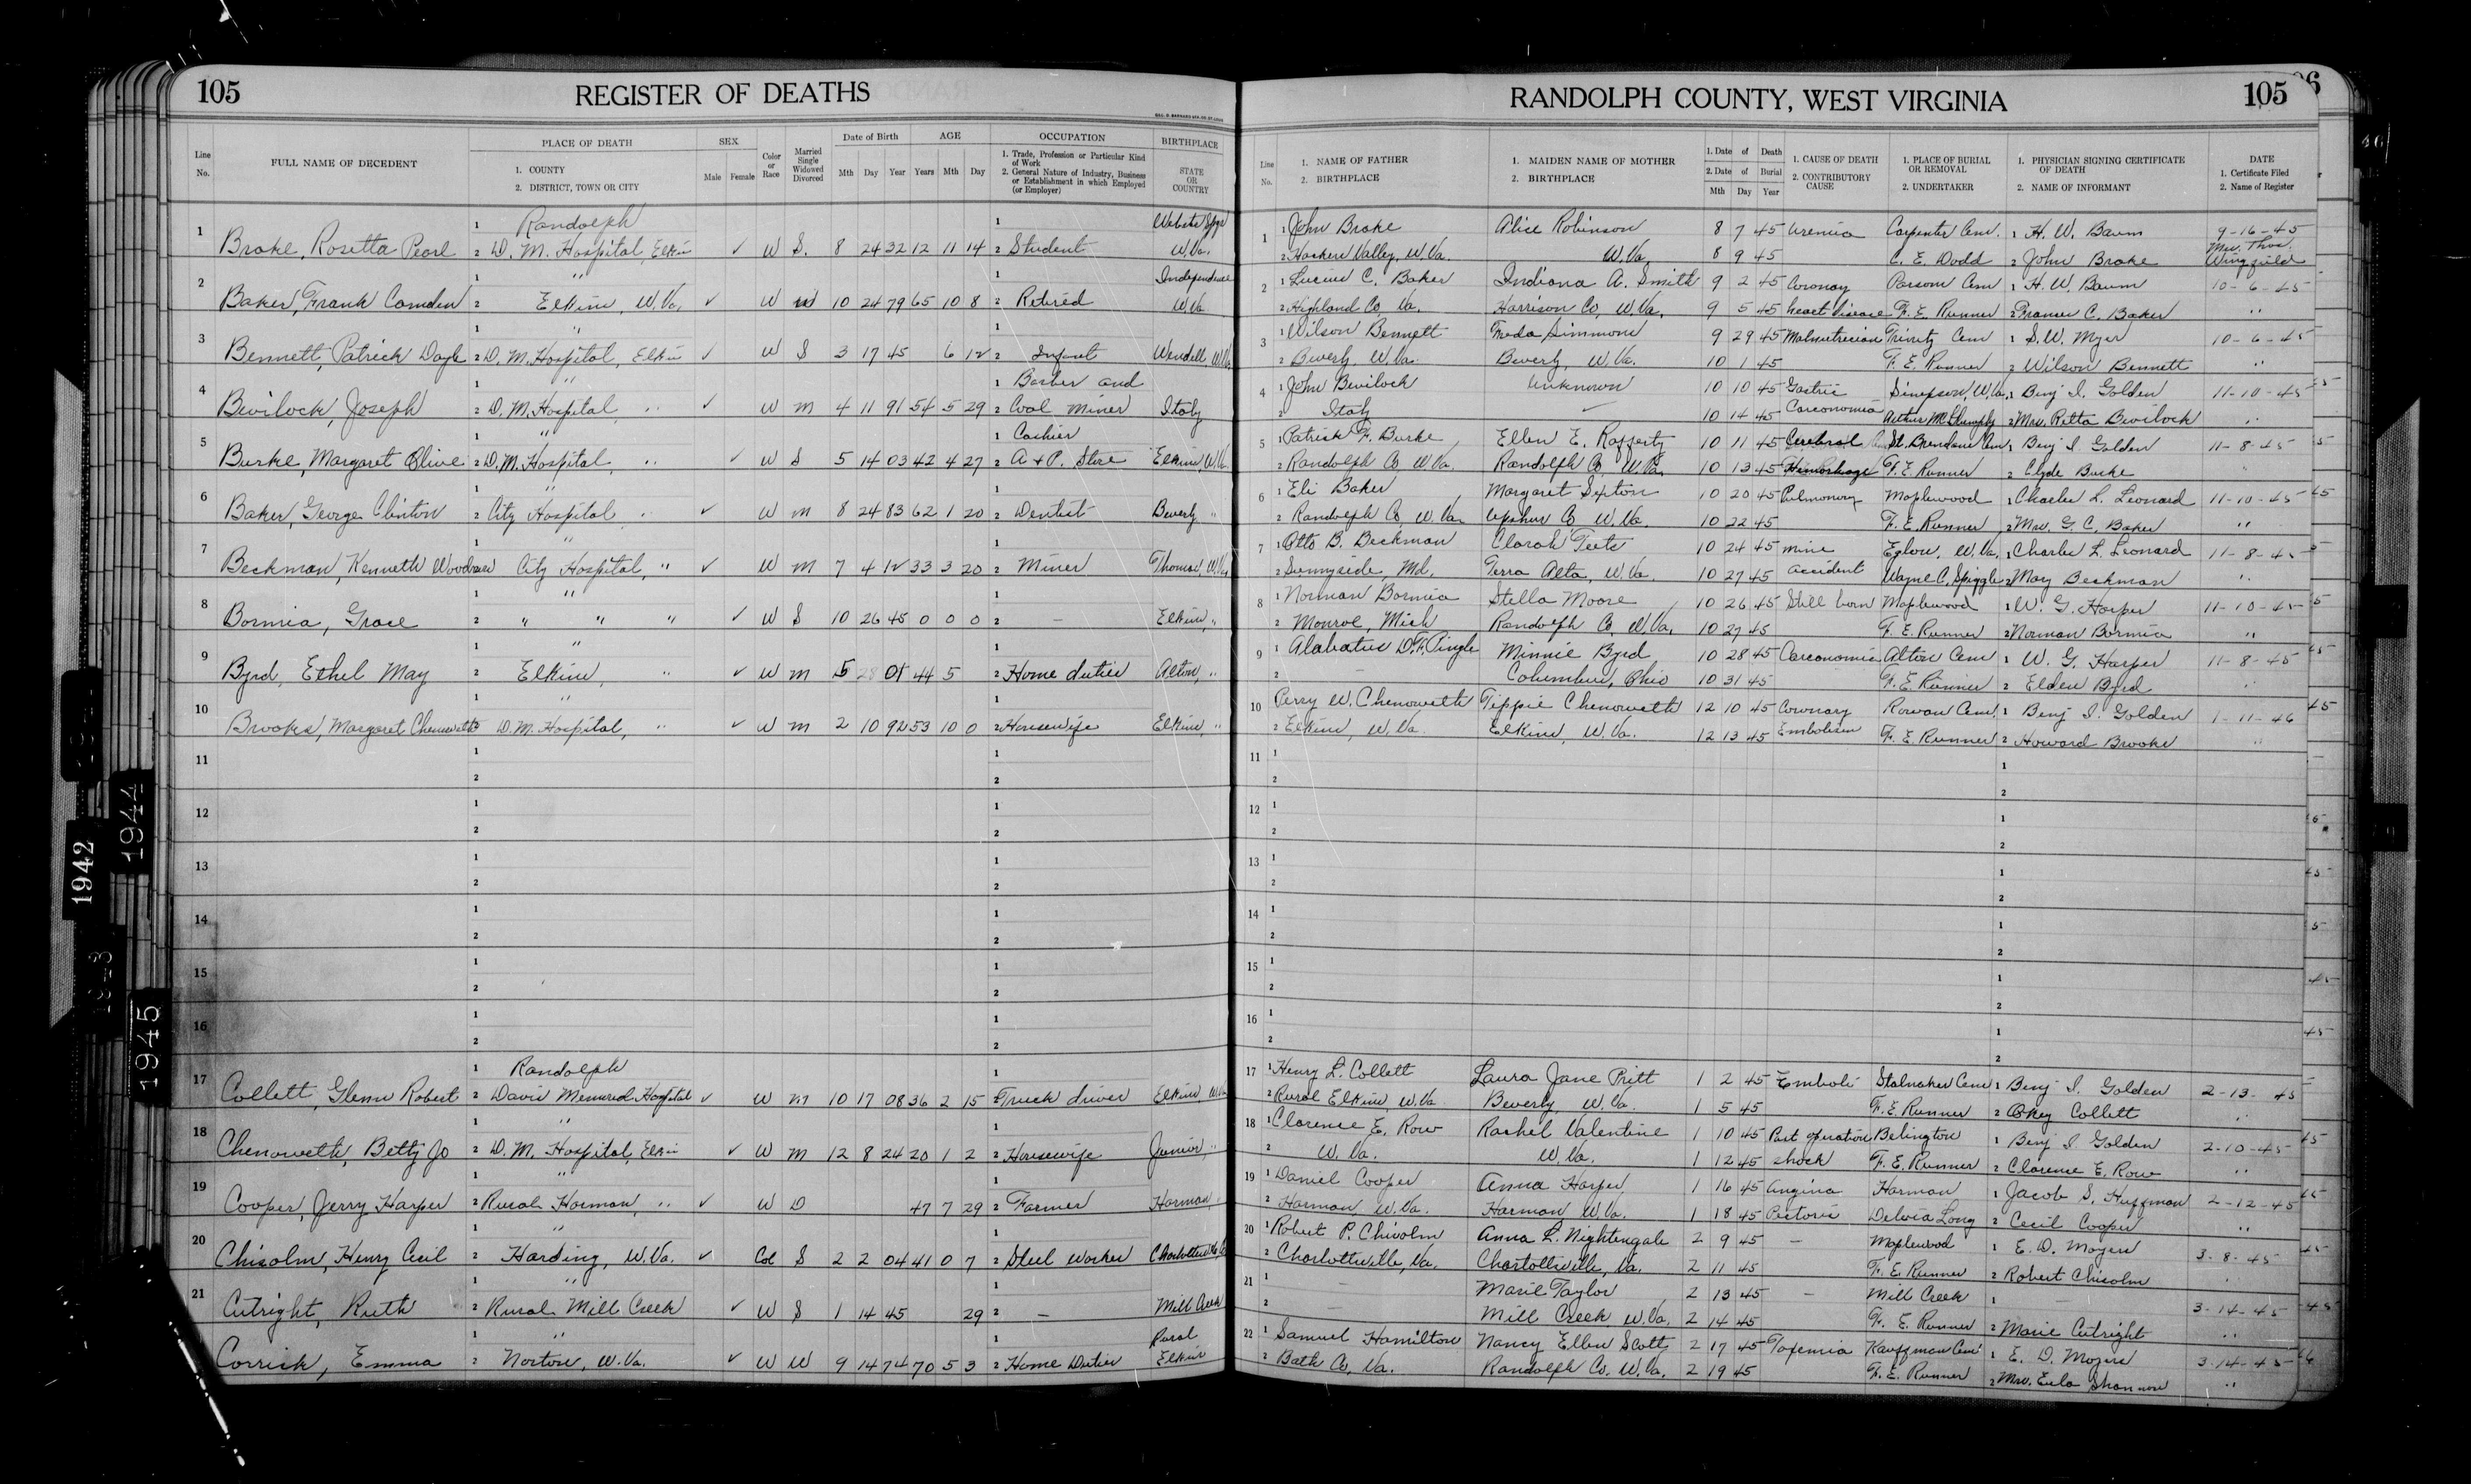 105 REGISTER OF DEATHS
RANDOLPH COUNTY, WEST VIRGINIA 105
Line No. FULL NAME OF DECEDENT PLACE OF DEATH 1. COUNTY 2. DISTRICT, TOWN OR CITY SEX Male Female Color or Race Married Single Widowed Divorced Date of Birth Mth Day Year AGE Years Mth Day OCCUPATION 1. Trade, Profession or Particular Kind of Work 2. General Nature of Industry, Business or Establishment in which Employed (or Employer) BIRTHPLACE STATE OR COUNTRY
Line No. 1. NAME OF FATHER 2. BIRTHPLACE 1. MAIDEN NAME OF MOTHER 2. BIRTHPLACE 1. Date of Death 2. Date of Burial Mth Day Year 1. CAUSE OF DEATH 2. CONTRIBUTORY CAUSE 1. PLACE OF BURIAL OR REMOVAL 2. UNDERTAKER 1. PHYSICIAN SIGNING CERTIFICATE OF DEATH 2. NAME OF INFORMANT DATE 1. Certificate Filed 2. Name of Register
1 1 Randolph 1 Webster Spgs
Brake, Rosetta Pearl 2 D. M. Hospital, Elkins ✓ W S. 8 24 32 12 11 14 2 Student W.Va.
2 1 " 1 Independence
Baker, Frank Camden 2 Elkins, W.Va. ✓ W W 10 24 79 65 10 8 2 Retired W.Va.
3 1 " 1
Bennett, Patrick Doyle 2 D. M. Hospital, Elkins ✓ W S 3 17 45 6 12 2 Infant Wendell W.Va.
4 1 " 1 Barber and
Bevilock, Joseph 2 D. M. Hospital, " ✓ W M 4 11 91 54 5 29 2 Coal Miner Italy
5 1 " 1 Cashier
Burke, Margaret Olive 2 D. M. Hospital, " ✓ W S 5 14 03 42 4 27 2 A + P. Store Elkins W.Va.
6 1 " 1
Baker, George Clinton 2 City Hospital " ✓ W M 8 24 83 62 1 20 2 Dentist Beverly "
7 1 " 1
Beckman, Kenneth Woodrow City Hospital, " ✓ W M 7 4 12 33 3 20 2 Miner Thomas, W.Va.
8 1 " 1
Bormia, Grace 2 " " " ✓ W S 10 26 45 0 0 0 2 - Elkins, "
9 1 " 1
Byrd, Ethel May 2 Elkins, " ✓ W M 5 28 01 44 5 2 Home duties Alton, "
10 1 " 1
Brooks, Margaret Chenoweth 2 D. M. Hospital, " ✓ W M 2 10 92 53 10 0 2 Housewife Elkins "
11 1 1
2 2
12 1 1
2 2
13 1 1
2 2
14 1 1
2 2
15 1 1
2 2
16 1 1
2 2
17 1 Randolph 1
Collett, Glenn Robert 2 Davis Memorial Hospital ✓ W M 10 17 08 36 2 15 2 Truck driver Elkins, W.Va.
18 1 " 1
Chenoweth, Betty Jo 2 D. M. Hospital, Elkins ✓ W M 12 8 24 20 1 2 2 Housewife Junior, "
19 1 " 1
Cooper, Jerry Harper 2 Rural Harman, " ✓ W D 47 7 29 2 Farmer Harman, "
20 1 " 1
Chisolm, Henry Cecil 2 Harding, W.Va. ✓ Col S 2 2 04 41 0 7 2 Steel Worker
21 1 " 1
Cutright, Ruth 2 Rural Mill Creek ✓ W S 1 14 45 29 2 - Mill Creek
1 " 1 Rural
Corrick, Emma 2 Norton, W.Va. ✓ W W 9 14 74 70 5 3 2 Home Duties Elkins
1 1 John Brake Alice Robinson 8 7 45 Uremia Carpenter Cem. 1 H. W. Baum 9-16-45
2 Hackers Valley, W.Va. W.Va. 8 9 45 C. E. Dodd 2 John Brake Mrs. Thos. Wingfield
2 1 Lucius C. Baker Indiana A. Smith 9 2 45 Coronay Parsons Cem 1 H. W. Baum 10-6-45
2 Highland Co, Va. Harrison Co, W.Va. 9 5 45 heart disease F. E. Runner 2 Frances C. Baker "
3 1 Wilson Bennett Freda Simmons 9 29 45 Malnutrician Trinity Cem 1 S. W. Myer 10-6-45
2 Beverly, W.Va. Beverly, W.Va. 10 1 45 F. E. Runner 2 Wilson Bennett "
4 1 John Bevilock Unknown 10 10 45 Gastric Simpson, W.Va. 1 Benj I. Golden 11-10-45
2 Italy ✓ 10 14 45 Carconomia 2 Mrs. Ritta Bevilock "
5 1 Patrick F. Burke Ellen E. Rafferty 10 11 45 Cerebral St. Brendans Cem 1 Benj I. Golden 11-8-45
2 Randolph Co W.Va. Randolph Co W.Va. 10 13 45 Hemorhage F. E. Runner 2 Clyde Burke "
6 1 Eli Baker Margaret Sexton 10 20 45 Pulmonary Maplewood 1 Charles L. Leonard 11-10-45
2 Randolph Co, W.Va. Upshur Co W.Va 10 22 45 F. E. Runner 2 Mrs. G. C. Baker "
7 1 Otto B. Beckman Clarah Teets 10 24 45 mine Eglon, W.Va. 1 Charles L. Leonard 11-8-45
2 Sunnyside, Md. Terra Alta, W.Va. 10 27 45 accident Wayne C. Spiggle 2 May Beckman "
8 1 Norman Bormia Stella Moore 10 26 45 Still born Maplewood 1 W. G. Harper 11-10-45
2 Monroe, Mich Randolph Co, W.Va. 10 27 45 F. E. Runner 2 Norman Bormia "
9 1 Alabatus D.F. Pingle Minnie Byrd 10 28 45 Carconomia Alton Cem 1 W. G. Harper 11-8-45
2 - Columbus, Ohio 10 31 45 F. E. Runner 2 Elden Byrd "
10 Perry W. Chenoweth Tippie Chenoweth 12 10 45 Coronary Rowan Cem. 1 Benj I. Golden 1-11-46
2 Elkins, W.Va. Elkins, W.Va. 12 13 45 Embolism F. E. Runner 2 Howard Brooks "
11 1 1
2 2
12 1 1
2 2
13 1 1
2 2
14 1 1
2 2
15 1 1
2 2
16 1 1
2 2
17 1 Henry L. Collett Laura Jane Pritt 1 2 45 Emboli Stalnaker Cem 1 Benj I. Golden 2-13-45
2 Rural Elkins, W.Va. Beverly, W.Va. 1 5 45 F. E. Runner 2 Okey Collett "
18 1 Clarence E. Row Rachel Valentine 1 10 45 Post operation Belington 1 Benj I Golden 2-10-45
2 W.Va. W.Va. 1 12 45 shock F. E. Runner 2 Clarence E. Row "
19 1 Daniel Cooper Anna Harper 1 16 45 Angina Harman 1 Jacob S. Huffman 2-12-45
2 Harman W.Va. Harman W.Va. 1 18 45 Pectoris Delvia Long 2 Cecil Cooper "
20 1 Robert P. Chisolm Anna L. Nightengale 2 9 45 - Maplewood 1 E. D. Moyers 3-8-45
2 Charlottsville, Va. Charlottsville, Va. 2 11 45 F. E. Runner 2 Robert Chisolm "
21 1 - Marie Taylor 2 13 45 - Mill Creek 1 - 3-14-45
2 - Mill Creek W.Va. 2 14 45 F. E. Runner 2 Marie Cutright "
22 1 Samuel Hamilton Nancy Ellen Scott 2 17 45 Toxemia Kauffman Cem 1 E. D. Moyers 3-14-45
2 Bath Co, Va. Randolph Co. W.Va. 2 19 45 F. E. Runner 2 Mrs. Eula Shannon "
1942
1944
1943
1945